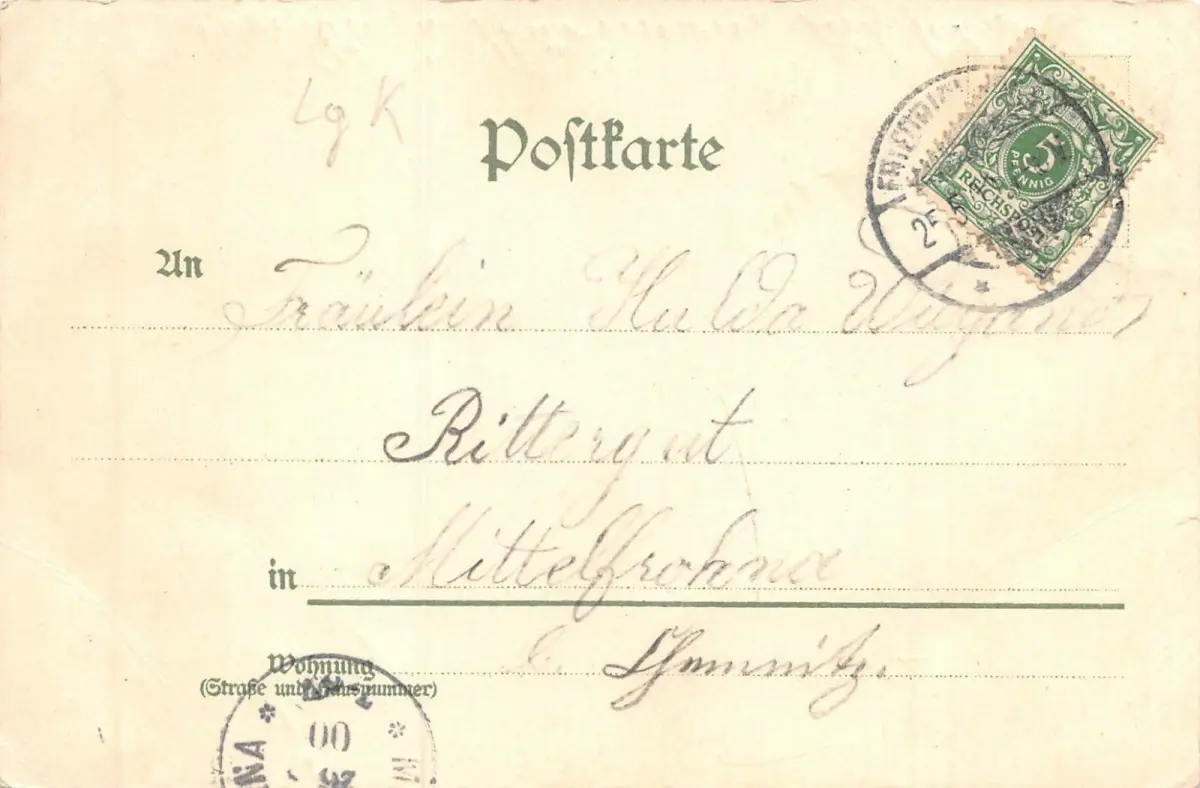 Lg K
Postkarte
5
PFENNIG
REICHSPOST
25
An Fräulein Hulda
Rittergut
in Mittelfrohna
Wohnung b. Chemnitz.
(Straße und Hausnummer)
00